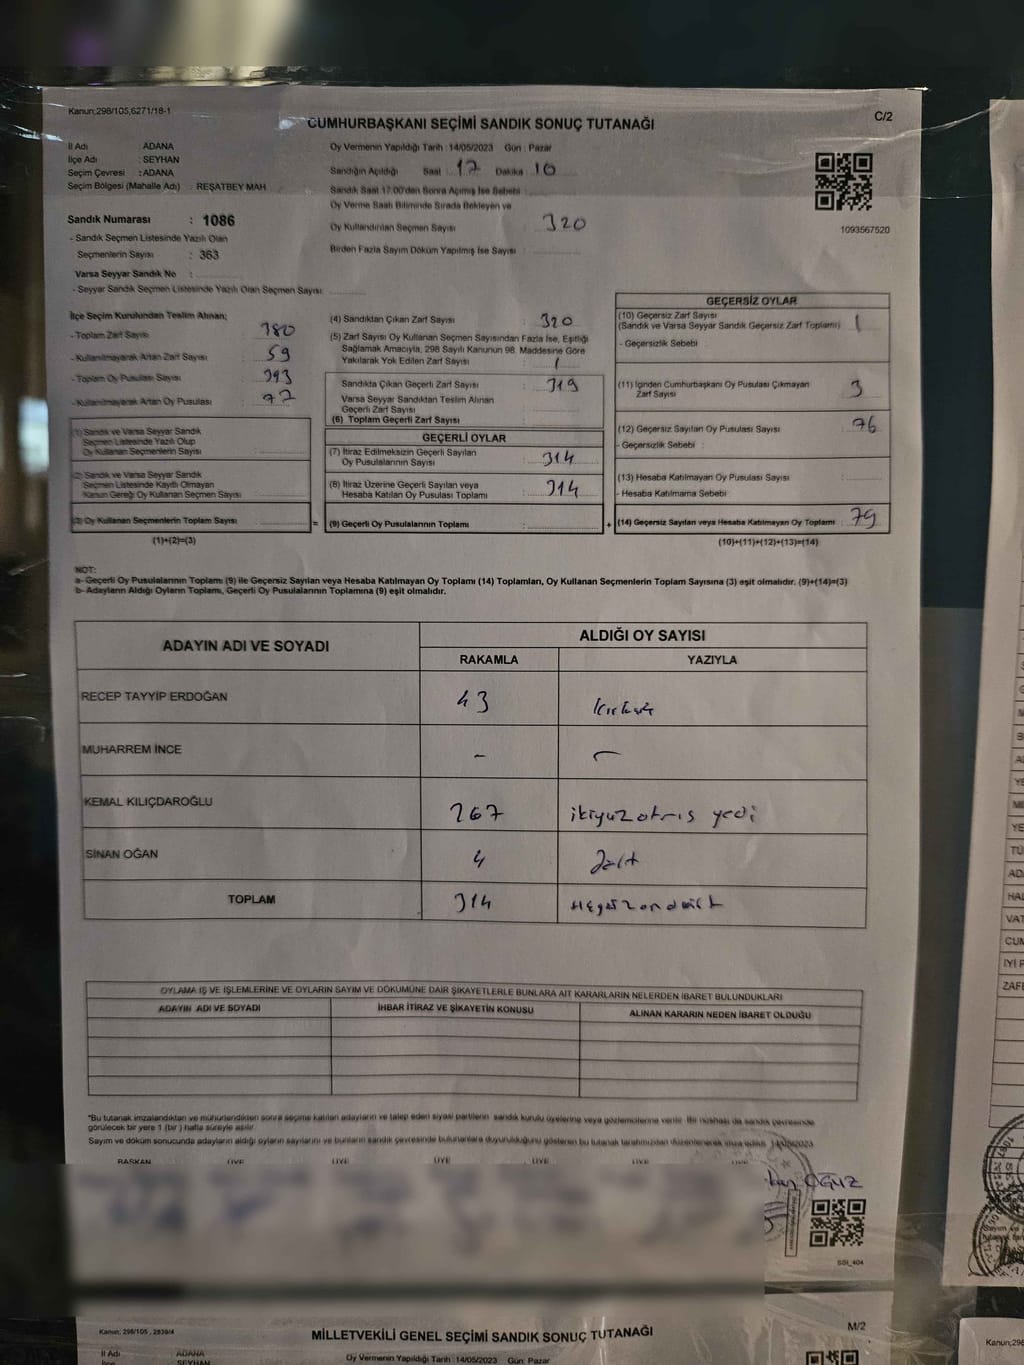 Kanun;298/105,6271/18-1
C/2
CUMHURBAŞKANI SEÇİMİ SANDIK SONUÇ TUTANAĞI
İl Adı ADANA
İlçe Adı : SEYHAN
Seçim Çevresi : ADANA
Seçim Bölgesi (Mahalle Adı) : REŞATBEY MAH
Sandık Numarası : 1086
- Sandık Seçmen Listesinde Yazılı Olan
Seçmenlerin Sayısı : 363
Varsa Seyyar Sandık No :
- Seyyar Sandık Seçmen Listesinde Yazılı Olan Seçmen Sayısı:
Oy Vermenin Yapıldığı Tarih : 14/05/2023 Gün : Pazar
Sandığın Açıldığı Saat : 17 Dakika : 10
Sandık Saat 17:00'den Sonra Açılmış İse Sebebi :
Oy Verme Saati Bitiminde Sırada Bekleyen ve
Oy Kullandırılan Seçmen Sayısı : 320
Birden Fazla Sayım Döküm Yapılmış İse Sayısı :
1093567520
İlçe Seçim Kurulundan Teslim Alınan;
- Toplam Zarf Sayısı : 380
- Kullanılmayarak Artan Zarf Sayısı : 59
- Toplam Oy Pusulası Sayısı : 393
- Kullanılmayarak Artan Oy Pusulası : 72
(1) Sandık ve Varsa Seyyar Sandık
Seçmen Listesinde Yazılı Olup
Oy Kullanan Seçmenlerin Sayısı :
(2) Sandık ve Varsa Seyyar Sandık
Seçmen Listesinde Kayıtlı Olmayan
Kanun Gereği Oy Kullanan Seçmen Sayısı :
(3) Oy Kullanan Seçmenlerin Toplam Sayısı :
(1)+(2)=(3)
(4) Sandıktan Çıkan Zarf Sayısı : 320
(5) Zarf Sayısı Oy Kullanan Seçmen Sayısından Fazla İse, Eşitliği
Sağlamak Amacıyla, 298 Sayılı Kanunun 98. Maddesine Göre
Yakılarak Yok Edilen Zarf Sayısı : 1
Sandıkta Çıkan Geçerli Zarf Sayısı : 319
Varsa Seyyar Sandıktan Teslim Alınan
Geçerli Zarf Sayısı :
(6) Toplam Geçerli Zarf Sayısı :
GEÇERLİ OYLAR
(7) İtiraz Edilmeksizin Geçerli Sayılan
Oy Pusulalarının Sayısı : 314
(8) İtiraz Üzerine Geçerli Sayılan veya
Hesaba Katılan Oy Pusulası Toplamı : 314
= (9) Geçerli Oy Pusulalarının Toplamı :
GEÇERSİZ OYLAR
(10) Geçersiz Zarf Sayısı
(Sandık ve Varsa Seyyar Sandık Geçersiz Zarf Toplamı) 1
- Geçersizlik Sebebi
(11) İçinden Cumhurbaşkanı Oy Pusulası Çıkmayan
Zarf Sayısı 3
(12) Geçersiz Sayılan Oy Pusulası Sayısı : 76
- Geçersizlik Sebebi :
(13) Hesaba Katılmayan Oy Pusulası Sayısı :
- Hesaba Katılmama Sebebi
+ (14) Geçersiz Sayılan veya Hesaba Katılmayan Oy Toplamı : 79
(10)+(11)+(12)+(13)=(14)
NOT:
a- Geçerli Oy Pusulalarının Toplamı (9) ile Geçersiz Sayılan veya Hesaba Katılmayan Oy Toplamı (14) Toplamları, Oy Kullanan Seçmenlerin Toplam Sayısına (3) eşit olmalıdır. (9)+(14)=(3)
b- Adayların Aldığı Oyların Toplamı, Geçerli Oy Pusulalarının Toplamına (9) eşit olmalıdır.
ADAYIN ADI VE SOYADI
ALDIĞI OY SAYISI
RAKAMLA YAZIYLA
RECEP TAYYİP ERDOĞAN 43
MUHARREM İNCE - -
KEMAL KILIÇDAROĞLU 267 ikiyüz yedi
SİNAN OĞAN 4
TOPLAM 314
OYLAMA İŞ VE İŞLEMLERİNE VE OYLARIN SAYIM VE DÖKÜMÜNE DAİR ŞİKAYETLERLE BUNLARA AİT KARARLARIN NELERDEN İBARET BULUNDUKLARI
ADAYIN ADI VE SOYADI İHBAR İTİRAZ VE ŞİKAYETİN KONUSU ALINAN KARARIN NEDEN İBARET OLDUĞU
*Bu tutanak imzalandıktan ve mühürlendikten sonra seçime katılan adayların ve talep eden siyasi partilerin sandık kurulu üyelerine veya gözlemcilerine verilir. Bir nüshası da sandık çevresinde
görülecek bir yere 1 (bir) hafta süreyle asılır.
Sayım ve döküm sonucunda adayların aldığı oyların sayılarını ve bunların sandık çevresinde bulunanlara duyurulduğunu gösteren bu tutanak tarafımızdan düzenlenerek imza edildi. 14/05/2023
BAŞKAN ÜYE ÜYE ÜYE ÜYE ÜYE ÜYE
OĞUZ
SSI_404
Kanun; 298/105 , 2839/4
M/2
MİLLETVEKİLİ GENEL SEÇİMİ SANDIK SONUÇ TUTANAĞI
İl Adı ADANA
İlçe SEYHAN
Oy Vermenin Yapıldığı Tarih : 14/05/2023 Gün: Pazar
Kanun;298